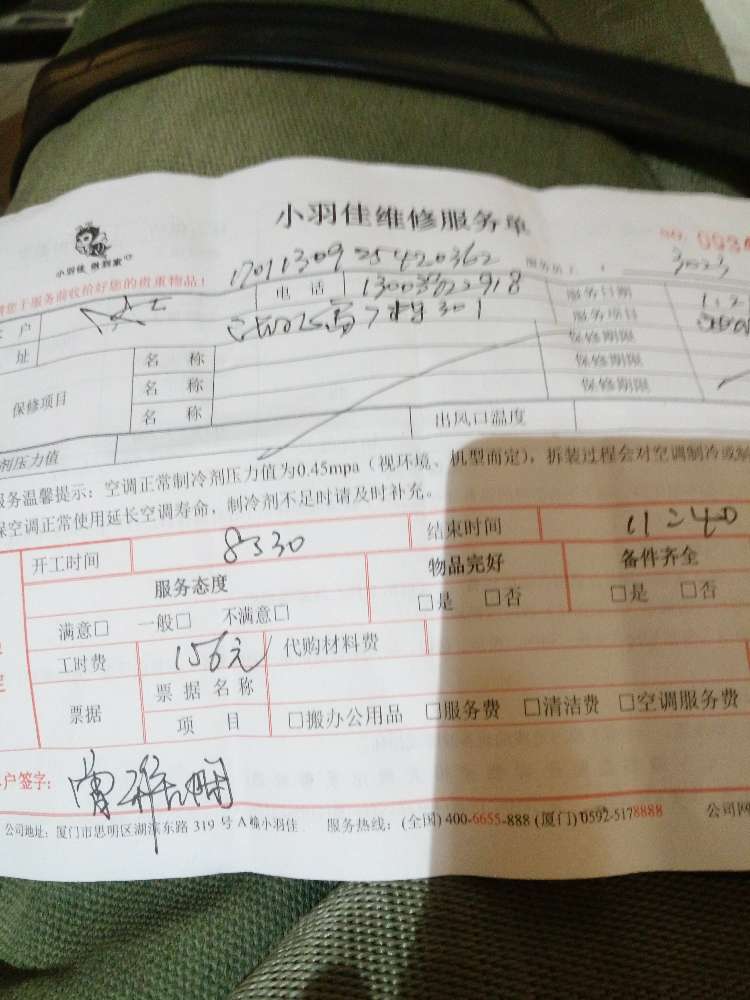 小羽佳维修服务单
小羽佳 做到家
NO. 0934
您于服务前收拾好您的贵重物品!
17011309 25420362
户
电 话
服务日期
1.2
址
7 301
服务项目
保修项目
名 称
保修期限
名 称
保修期限
名 称
保修期限
剂压力值
出风口温度
服务温馨提示:空调正常制冷剂压力值为0.45mpa(视环境、机型而定),拆装过程会对空调制冷或制
保空调正常使用延长空调寿命,制冷剂不足时请及时补充。
开工时间
8:30
结束时间
11:40
服务态度
物品完好
备件齐全
满意□ 一般□ 不满意□
□是 □否
□是 □否
工时费
156元
代购材料费
票据
票 据 名 称
项 目
□搬办公用品 □服务费 □清洁费 □空调服务费
户签字:
公司地址:厦门市思明区湖滨东路 319 号 A 幢小羽佳 服务热线:(全国)400-6655-888 (厦门)0592-5178888 公司网